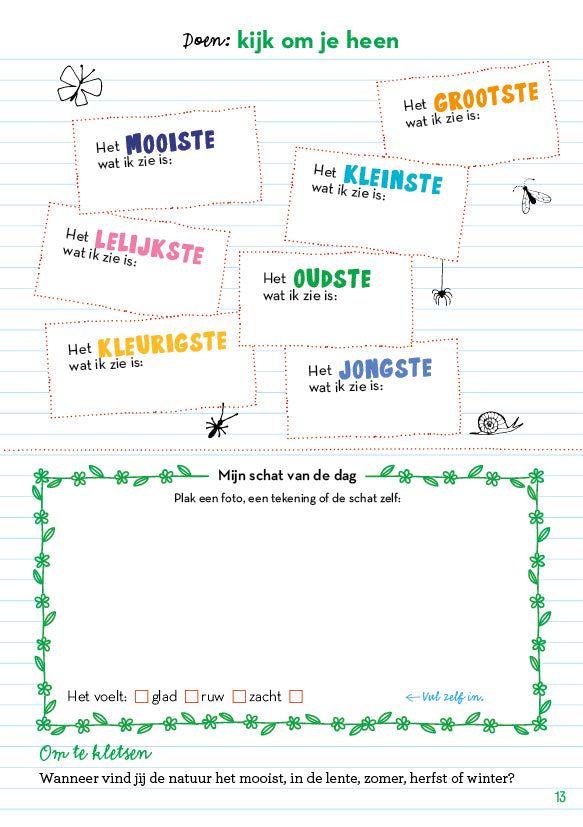 Doen: kijk om je heen
Het GROOTSTE
wat ik zie is:
Het MOOISTE
wat ik zie is:
Het KLEINSTE
wat ik zie is:
Het LELIJKSTE
wat ik zie is:
Het OUDSTE
wat ik zie is:
Het KLEURIGSTE
wat ik zie is:
Het JONGSTE
wat ik zie is:
Mijn schat van de dag
Plak een foto, een tekening of de schat zelf:
Het voelt: glad ruw zacht
Vul zelf in.
Om te kletsen
Wanneer vind jij de natuur het mooist, in de lente, zomer, herfst of winter?
13